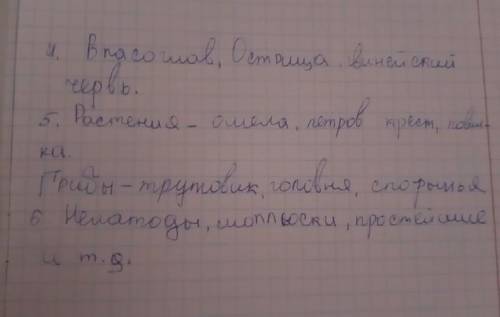 4. Власоглав, Острица, винейский
червь.
5. Растения - омела, петров крест, повили-
ка.
Грибы - трутовик, головня, спорынья
6 Нематоды, моллюски, простейшие
и т.д.